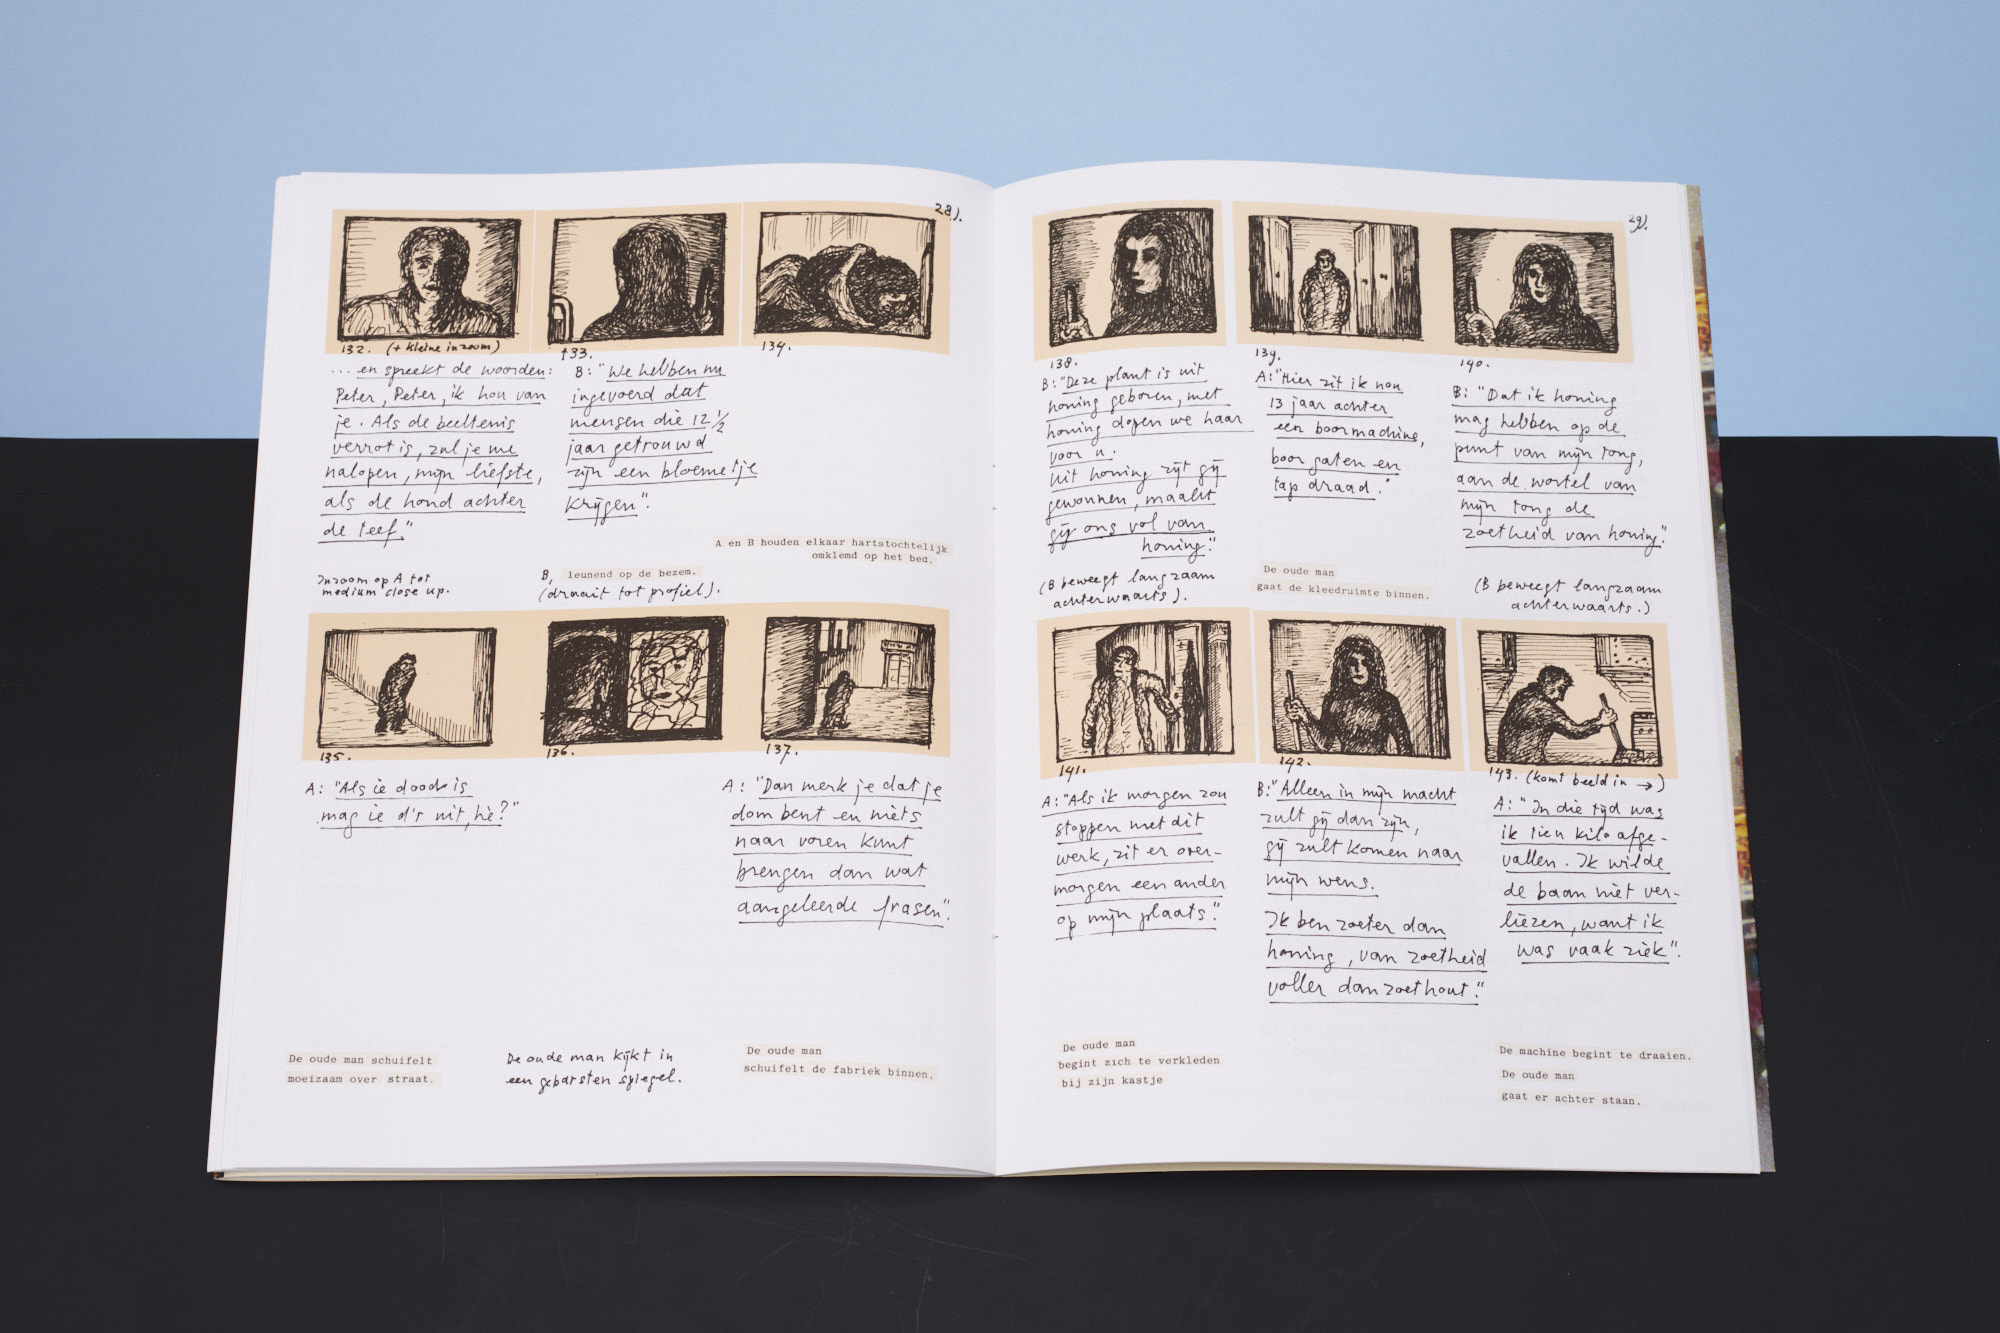 28).
132. (+ kleine inzoom)
... en spreekt de woorden:
Peter, Peter, ik hou van
je. Als de beeltenis
verrot is, zul je me
nalopen, mijn liefste,
als de hond achter
de teef."
Inzoom op A tot
medium close up.
133.
B: "We hebben nu
ingevoerd dat
mensen die 12 1/2
jaar getrouwd
zijn een bloemetje
krijgen".
B, leunend op de bezem.
(draait tot profiel).
134.
A en B houden elkaar hartstochtelijk
omklemd op het bed.
135.
A: "Als ie dood is
mag ie d'r uit, hè?"
De oude man schuifelt
moeizaam over straat.
136.
De oude man kijkt in
een gebarsten spiegel.
137.
A: "Dan merk je dat je
dom bent en niets
naar voren kunt
brengen dan wat
aangeleerde frasen".
De oude man
schuifelt de fabriek binnen.
29).
138.
B: "Deze plant is uit
honing geboren, met
honing dopen we haar
voor u.
Uit honing zijt gij
gewonnen, maakt
gij ons vol van
honing."
(B beweegt langzaam
achterwaarts).
139.
A: "Hier zit ik nou
13 jaar achter
een boormachine,
boor gaten en
tap draad."
De oude man
gaat de kleedruimte binnen.
140.
B: "Dat ik honing
mag hebben op de
punt van mijn tong,
aan de wortel van
mijn tong de
zoetheid van honing."
(B beweegt langzaam
achterwaarts.)
141.
A: "Als ik morgen zou
stoppen met dit
werk, zit er over-
morgen een ander
op mijn plaats."
De oude man
begint zich te verkleden
bij zijn kastje
142.
B: "Alleen in mijn macht
zult gij dan zijn,
gij zult komen naar
mijn wens.
Ik ben zoeter dan
honing, van zoetheid
voller dan zoethout."
143. (komt beeld in →)
A: "In die tijd was
ik tien kilo afge-
vallen. Ik wilde
de baan niet ver-
liezen, want ik
was vaak ziek".
De machine begint te draaien.
De oude man
gaat er achter staan.